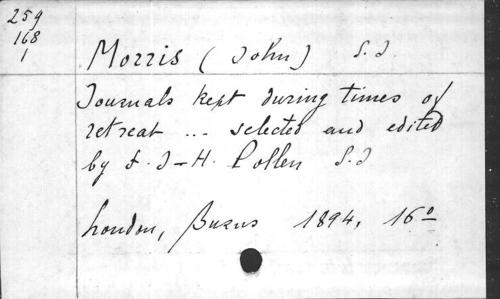 259
168
1
Morris (John) S.J.
Journals kept during times of
retreat ... selected and edited
by F. J-H. Pollen S.J
London, Burns 1894, 16°